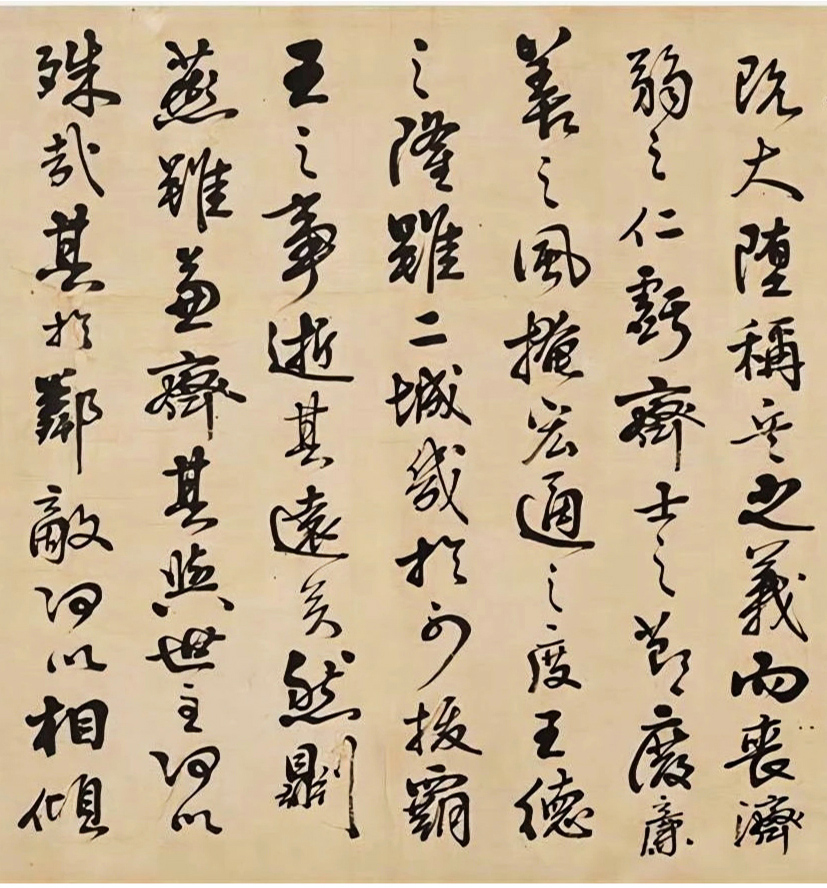 既大墮稱兵之義而喪濟
弱之仁虧齊士之節廢廉
善之風掩宏通之度王德
之隆雖二城幾於可拔霸
王之事逝其遠矣然則
燕雖兼齊其與世主何以
殊哉其於鄰敵何以相傾